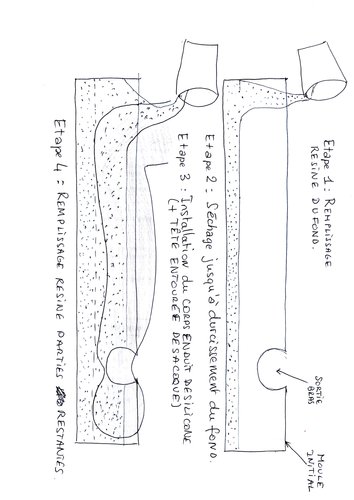 Etape 1 : REMPLISSAGE
RESINE DU FOND.
SORTIE
BRAS
MOULE
INITIAL
Etape 2 : Séchage jusqu'à durcissement du fond.
Etape 3 : Installation du CORPS ENDUIT DE SILICONE
(+ TÊTE ENTOURÉE DE SA COQUE)
Etape 4 : REMPLISSAGE RESINE PARTIES RESTANTES